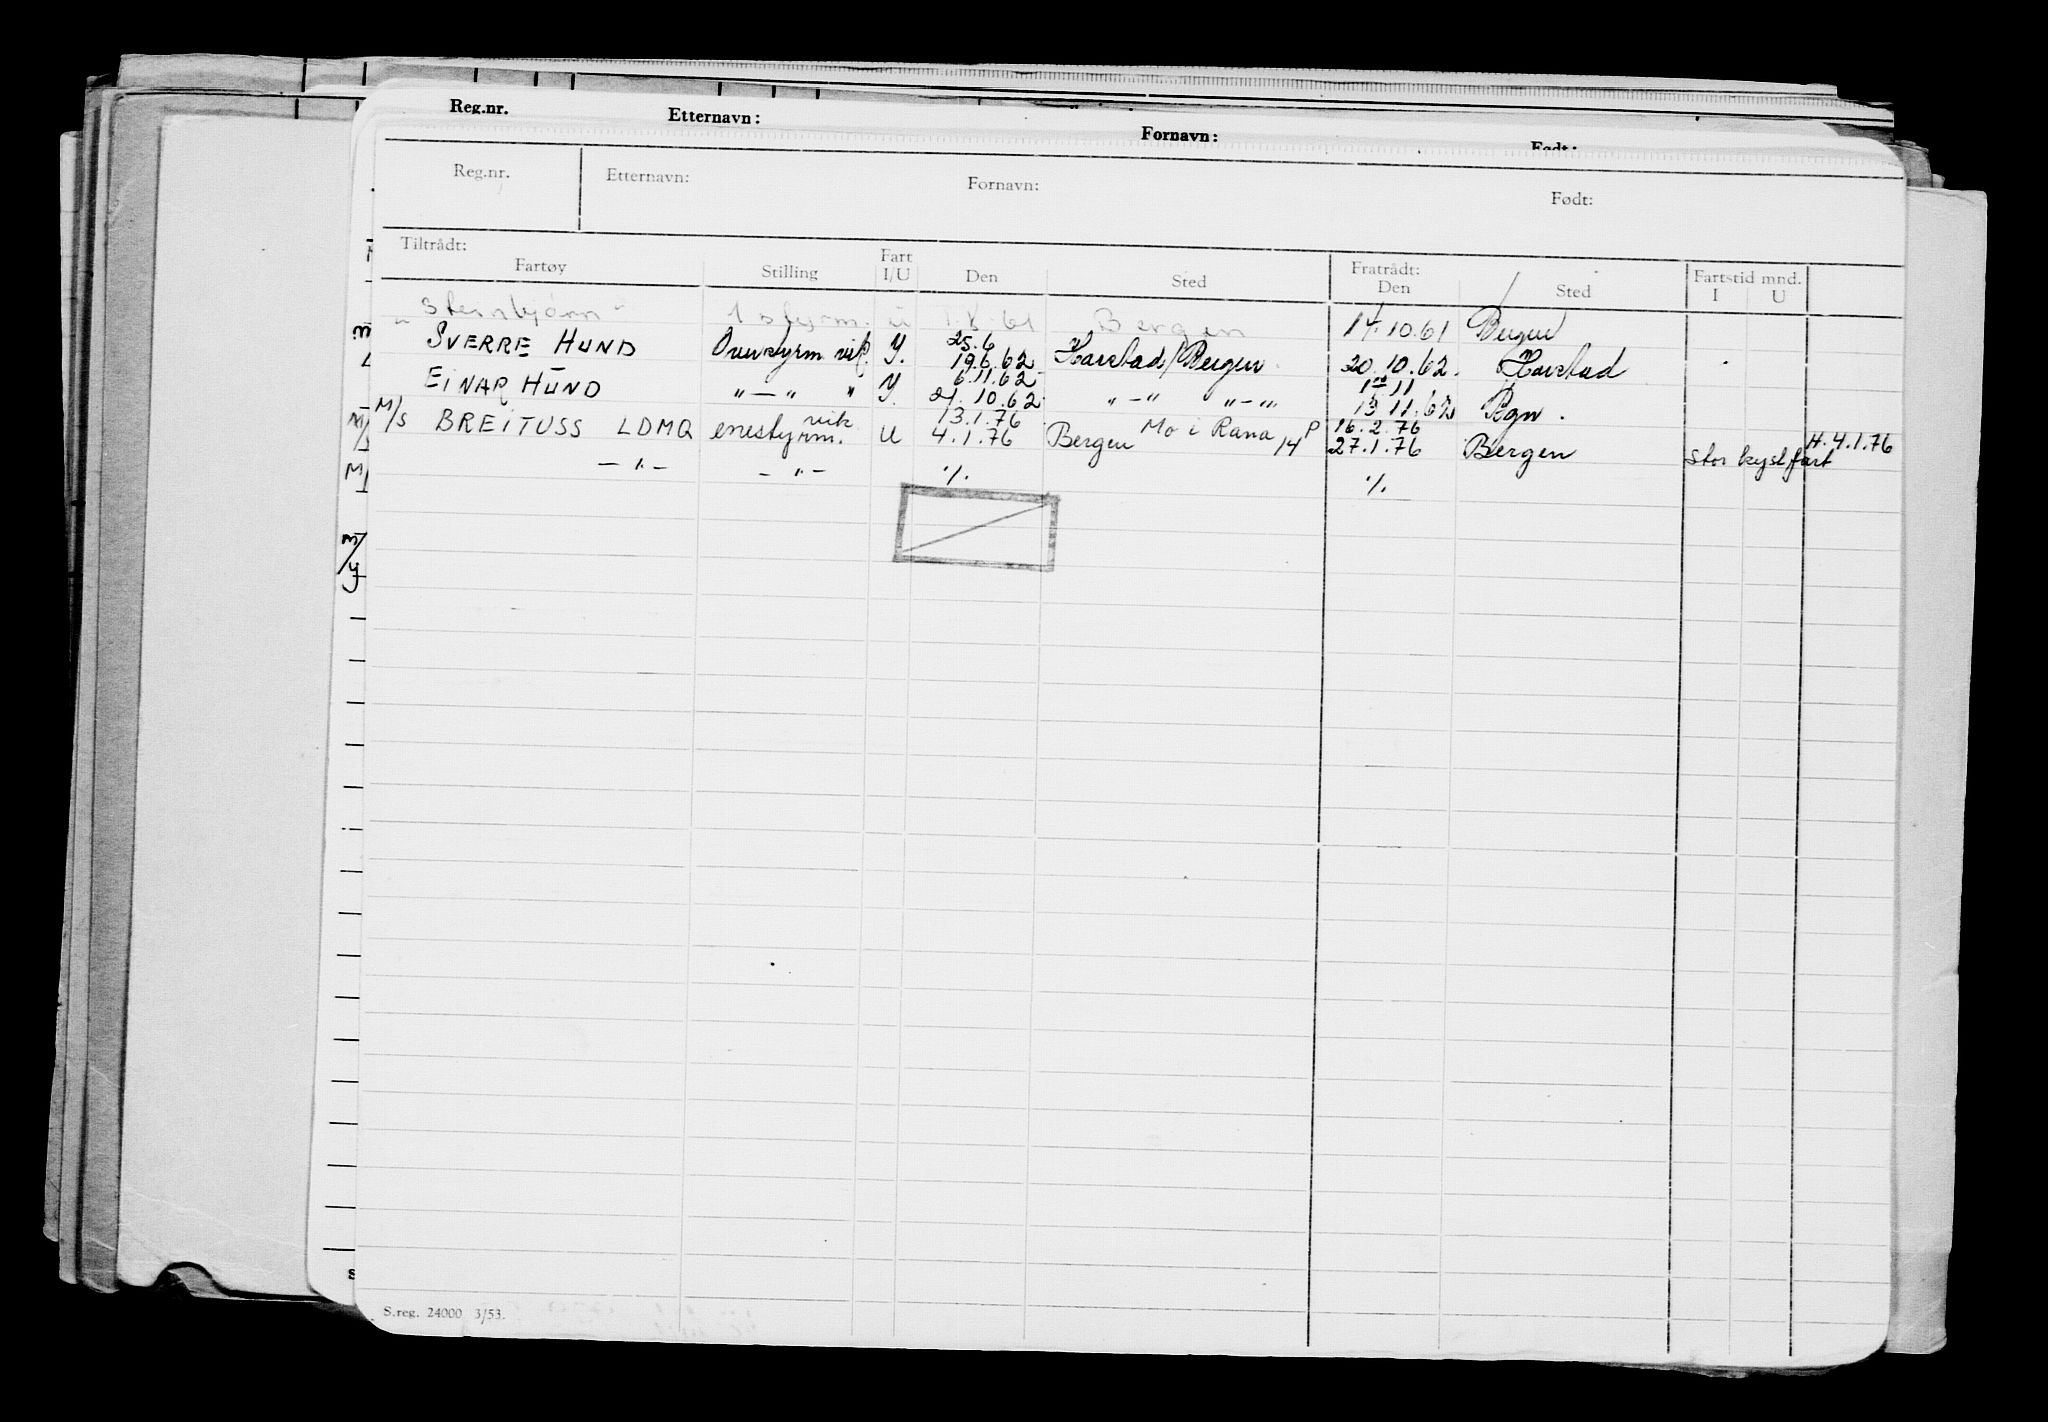 Reg.nr. Etternavn: Fornavn: Født:
Reg.nr. Etternavn: Fornavn: Født:
Tiltrådt: Fart Fratrådt: Fartstid mnd.
Fartøy Stilling I/U Den Sted Den Sted I U
"Steinbjørn" 1 styrm. u 1.8.61 Bergen 14.10.61 Bergen
25.6
SVERRE HUND Overstyrm vik. Y. 19.6.62 Harstad/Bergen. 20.10.62. Harstad
6.11.62 1 11
EINAR HUND " — " " Y. 21.10.62 " — " " — " 11.62 Bgn.
vik 13.1.76 Mo i Rana P 16.2.76 H. 4.1.76
M/S BREITUSS LDMQ enestyrm. U 4.1.76 Bergen 14 27.1.76 Bergen stor kystfart
— " — — " — ./. ./.
S.reg. 24000 3/53.